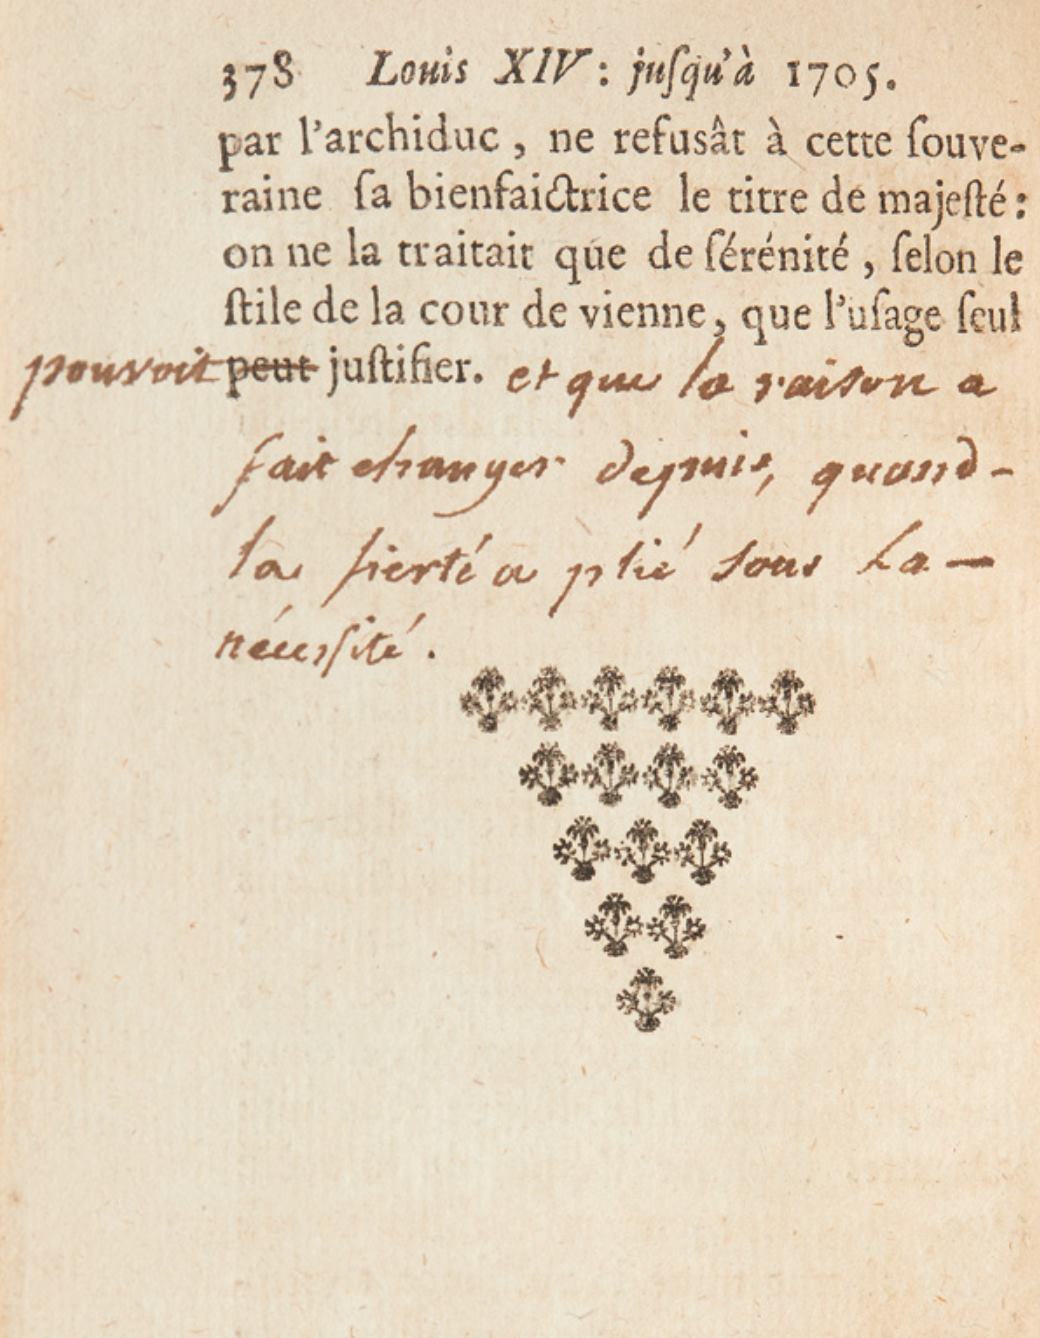 378 Louis XIV : juſqu'à 1705.
par l'archiduc , ne refusât à cette ſouve-
raine ſa bienfaictrice le titre de majeſté :
on ne la traitait que de ſérénité , ſelon le
ſtile de la cour de vienne, que l'uſage ſeul
pouvoit peut juſtifier. et que la raison a
fait changer depuis, quand-
la fierté a plié sous la —
nécesſité.